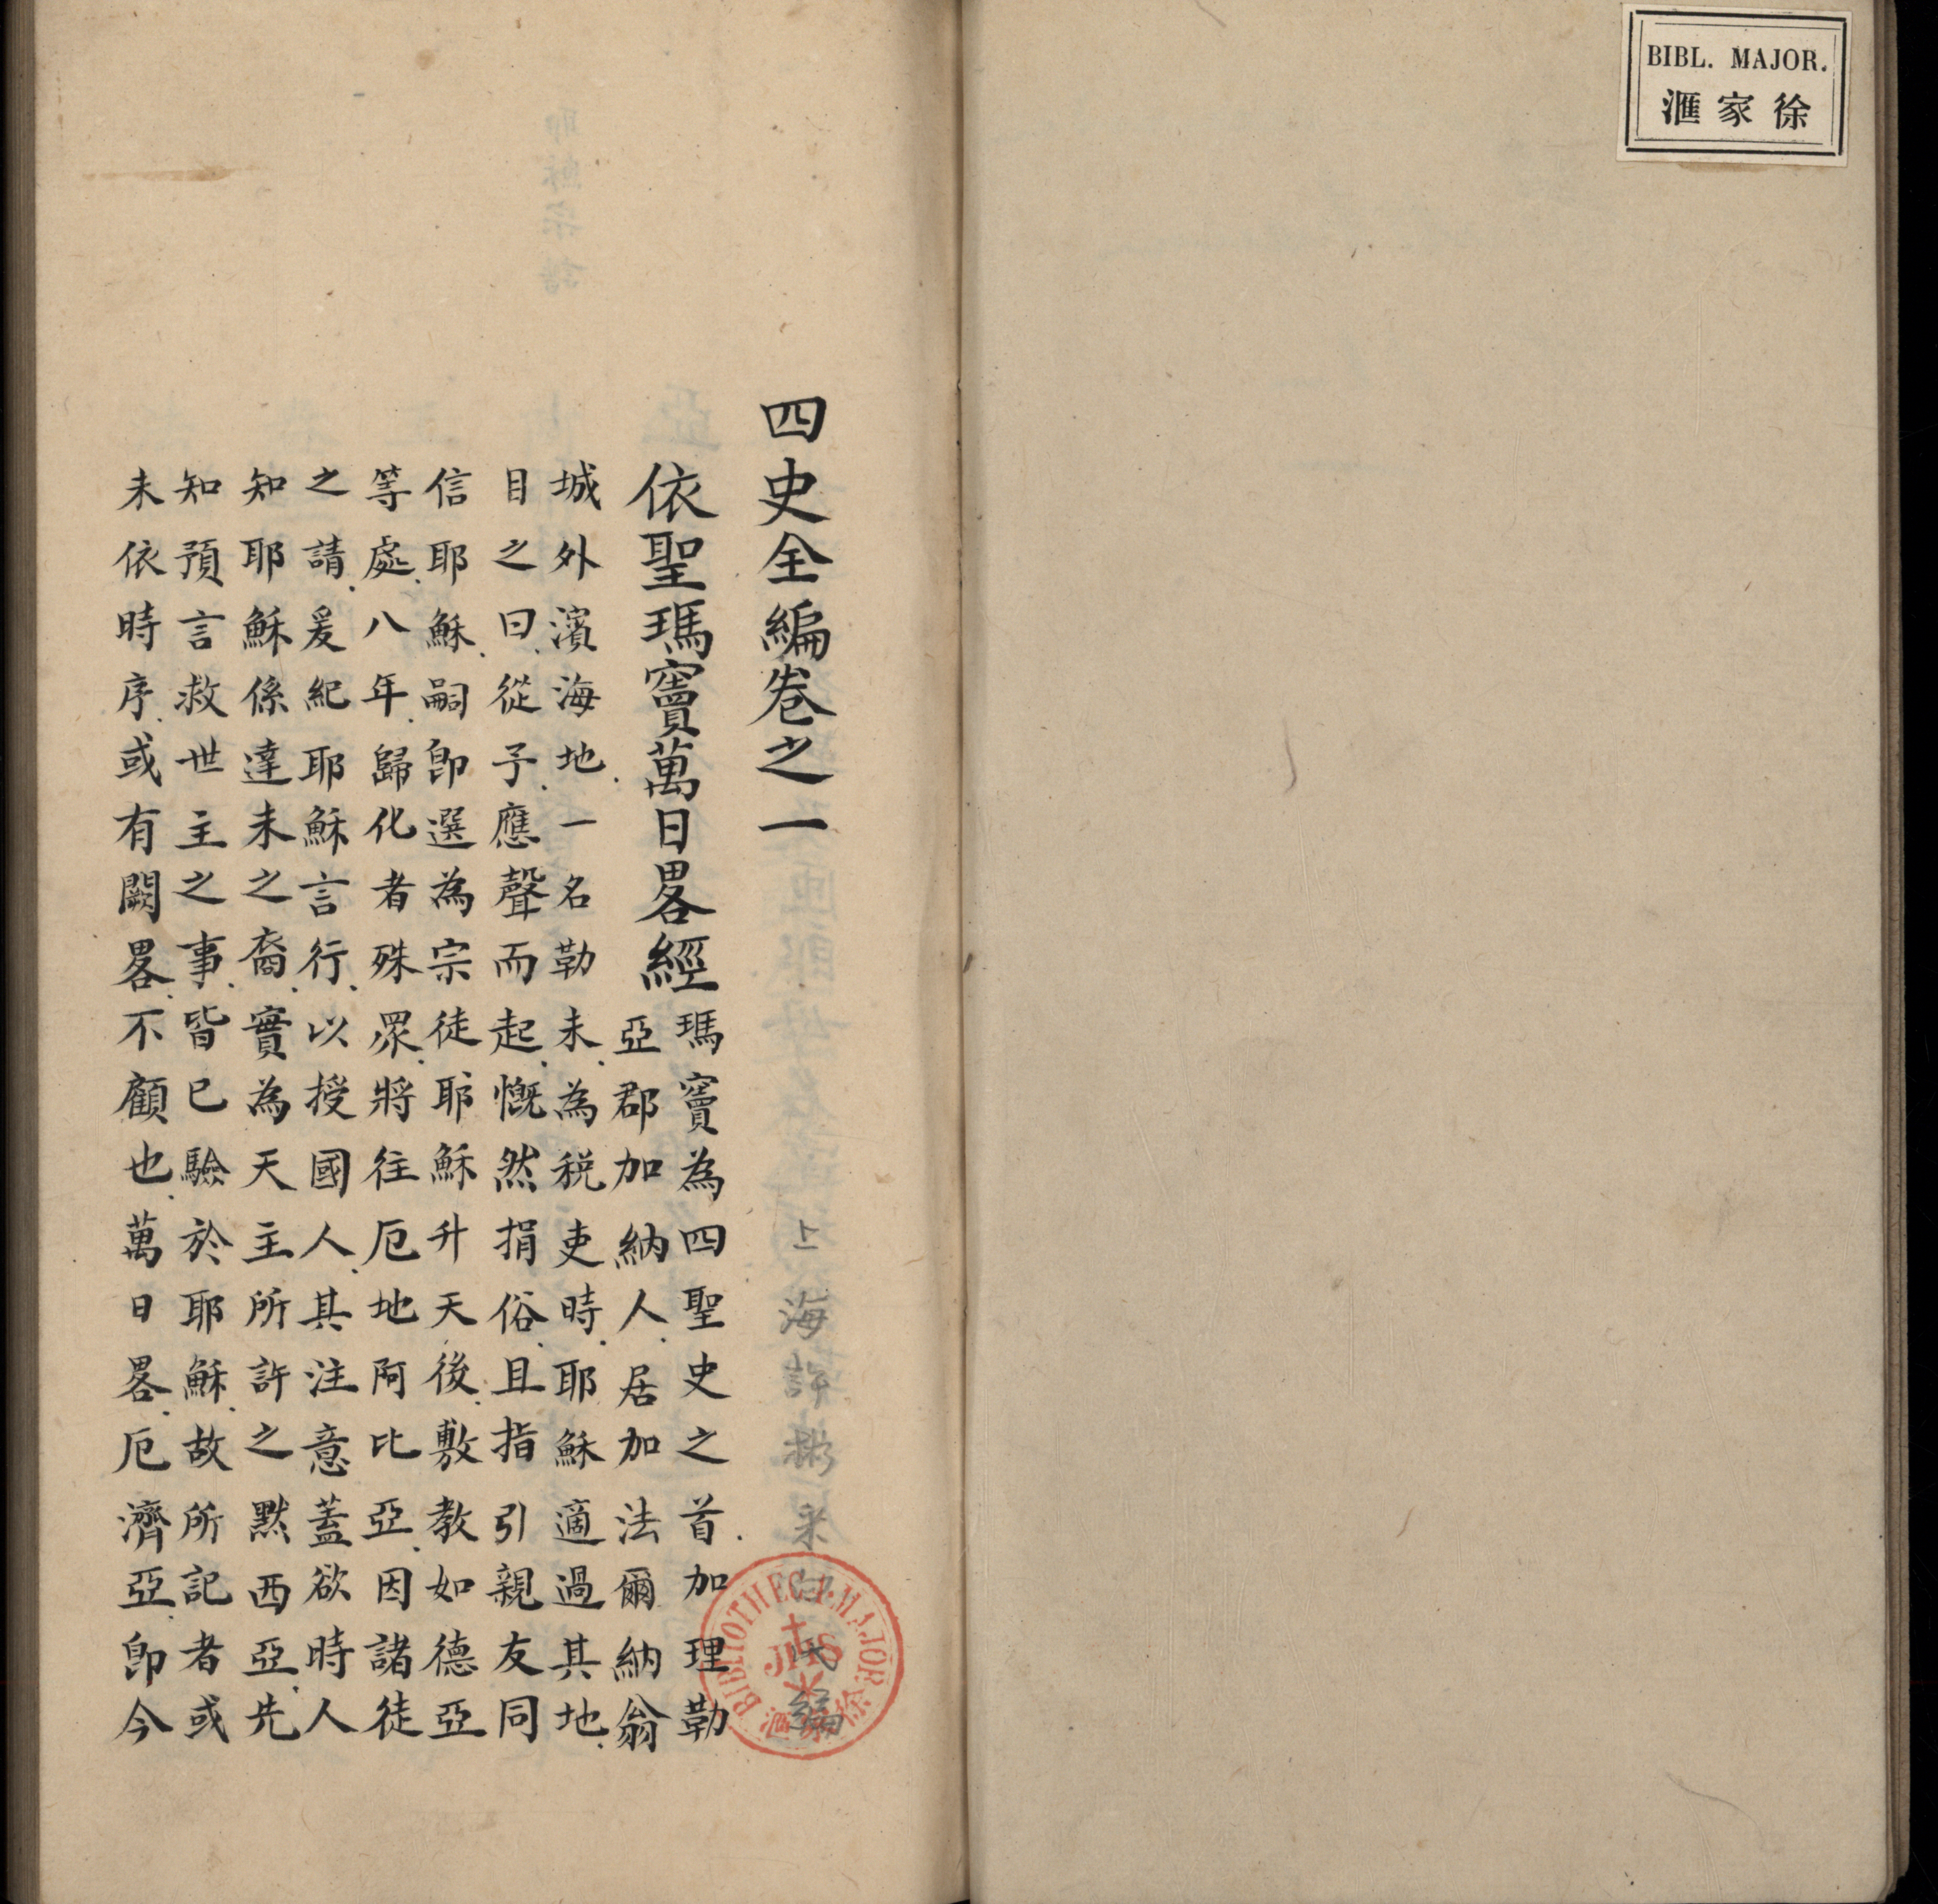 BIBL. MAJOR.
滙家徐
四史全編卷之一
上海許彬采白氏編
依聖瑪竇萬日畧經
瑪竇為四聖史之首加理勒
亞郡加納人居加法爾納翁
城外濱海地一名勒未為税吏時耶穌適過其地
目之曰從予應聲而起慨然捐俗且指引親友同
信耶穌嗣即選為宗徒耶穌升天後敷教如德亞
等處八年歸化者殊眾將往厄地阿比亞因諸徒
之請爰紀耶穌言行以授國人其注意蓋欲時人
知耶穌係達未之裔實為天主所許之默西亞先
知預言救世主之事皆已驗於耶穌故所記者或
未依時序或有闕畧不顧也萬日畧厄濟亞即今
BIBLIOTHECA MAJOR
JHS